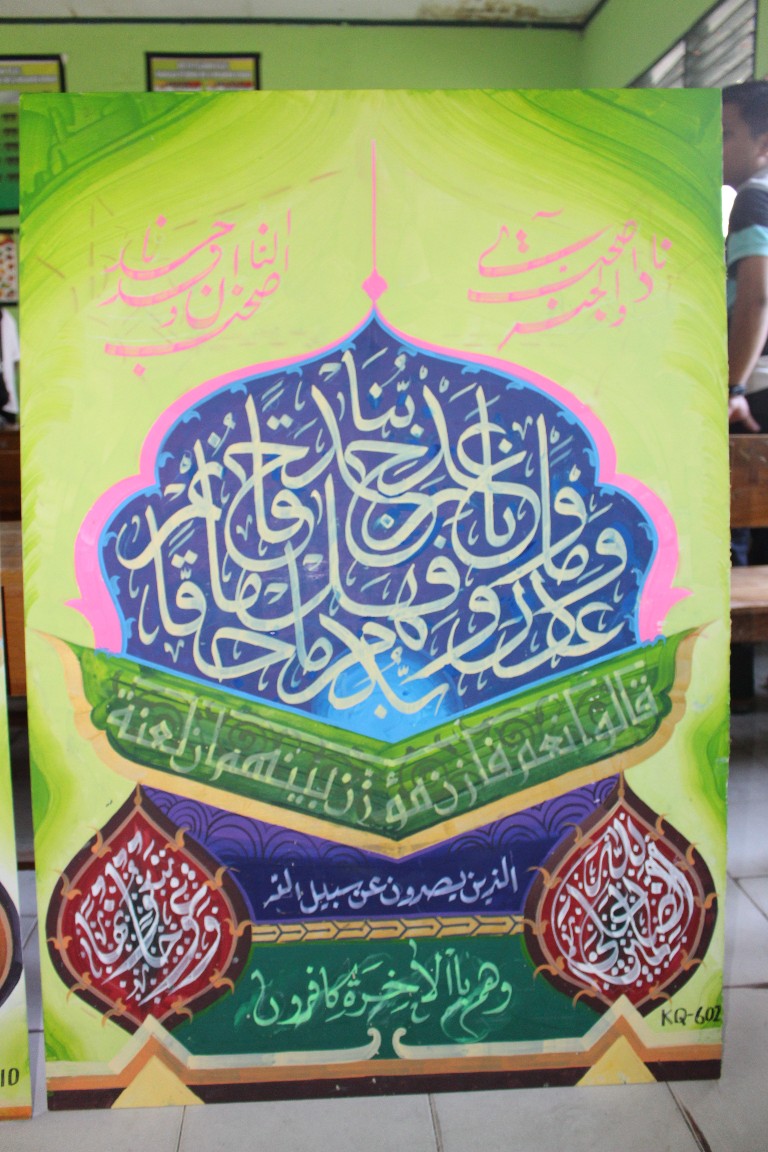 ونادى اصحب الجنة
اصحب النار ان قد وجدنا
ما وعدنا ربنا حقا فهل وجدتم ما وعد ربكم حقا
قالوا نعم فأذن مؤذن بينهم ان لعنة
الله على الظلمين
الذين يصدون عن سبيل الله
ويبغونها عوجا
وهم بالاخرة كافرون
KQ-602
10